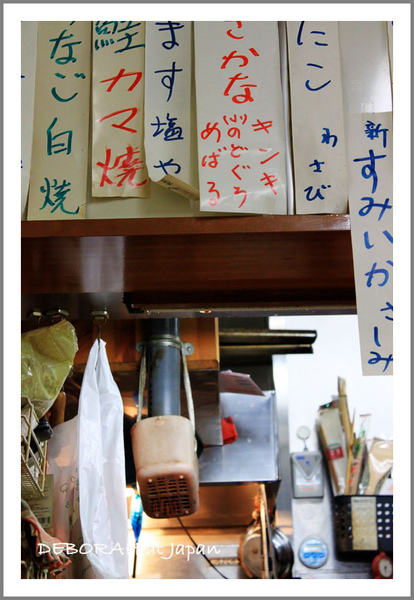 新すみいかさしみ
たこわさび
さかな
キンキ
のどぐろ
めばる
ます塩や
鮭カマ焼
なご白焼
DEBORA at Japan